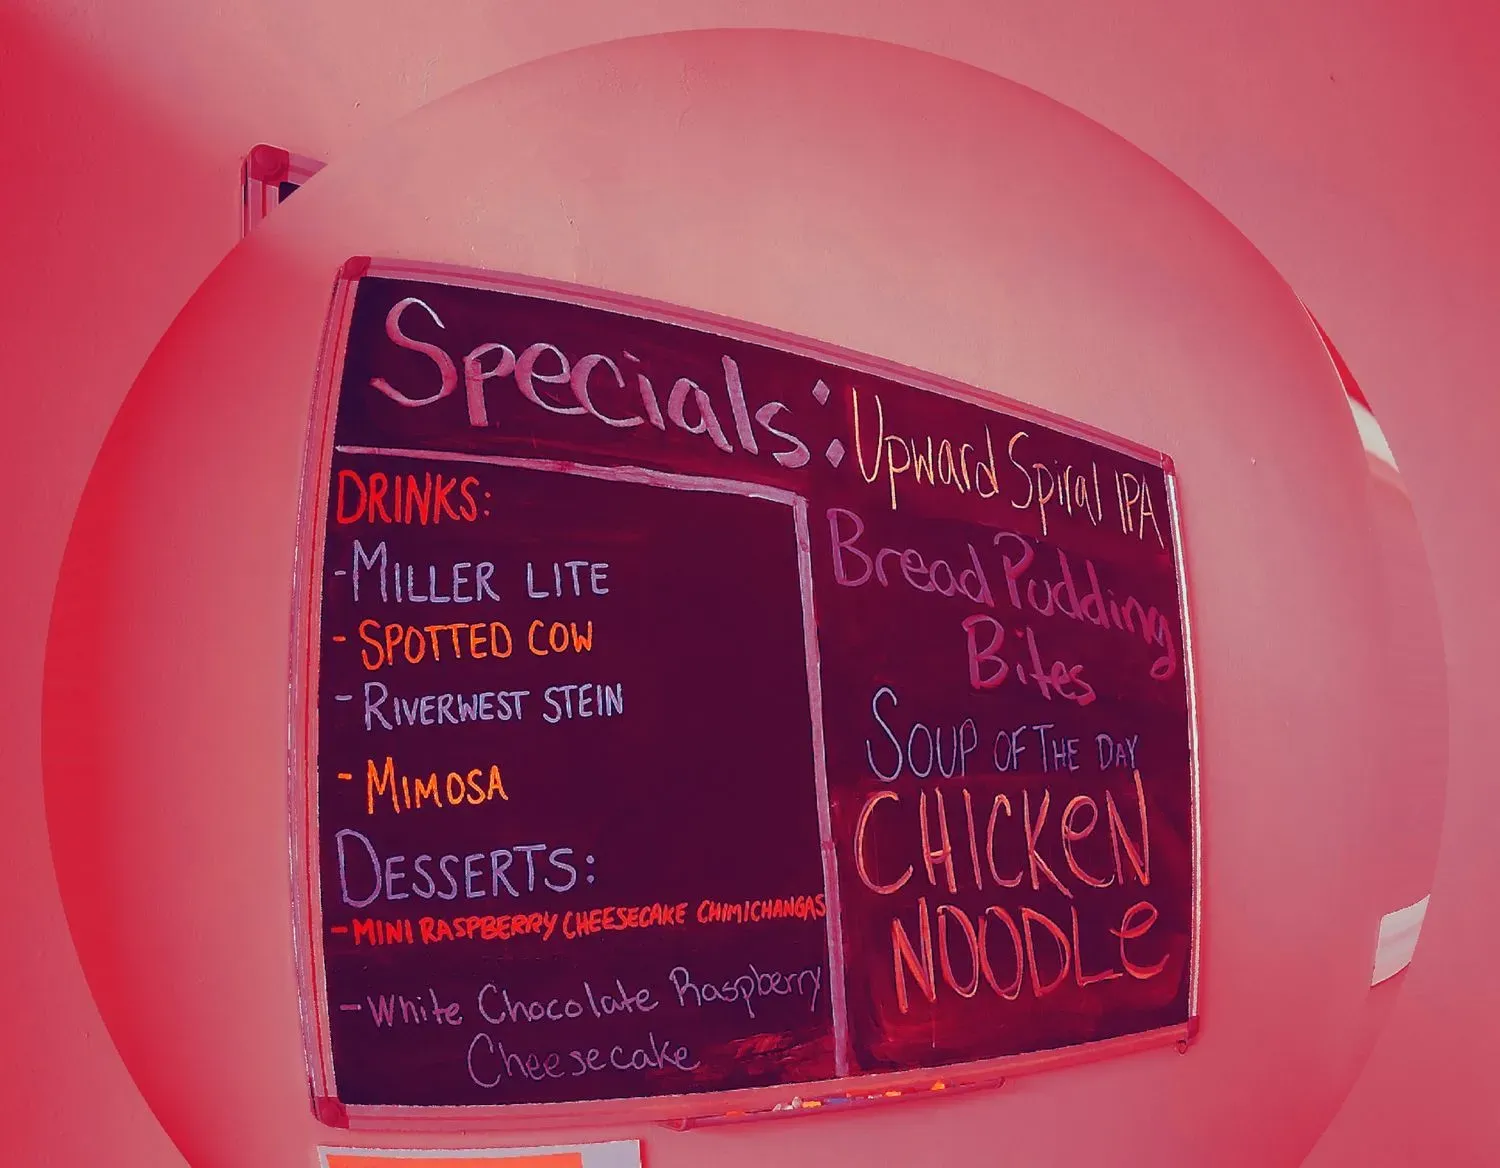 Specials:
DRINKS:
-MILLER LITE
- SPOTTED COW
- RIVERWEST STEIN
- MIMOSA
DESSERTS:
-MINI RASPBERRY CHEESECAKE CHIMICHANGAS
-White Chocolate Raspberry
Cheesecake
Upward Spiral IPA
Bread Pudding
Bites
SOUP OF THE DAY
CHICKeN
NOODLe